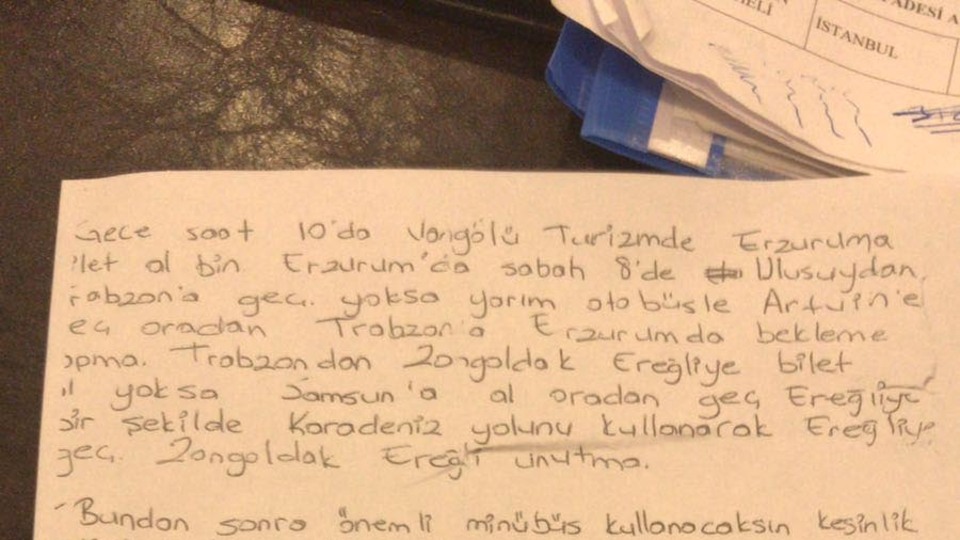 ADESİ A
ELİ
İSTANBUL
Gece saat 10'da Vangölü Turizmde Erzuruma
ilet al bin Erzurum'da sabah 8'de Ulusuydan
rabzon'a geç. yoksa yarım otobüsle Artvin'e
eç oradan Trabzon'a Erzurumda bekleme
apma. Trabzondan Zongoldak Ereğliye bilet
al yoksa Samsun'a al oradan geç Ereğliye
bir şekilde Karadeniz yolunu kullanarak Ereğliye
geç. Zongoldak Ereğli unutma.
Bundan sonra önemli minübüs kullanacaksın kesinlik